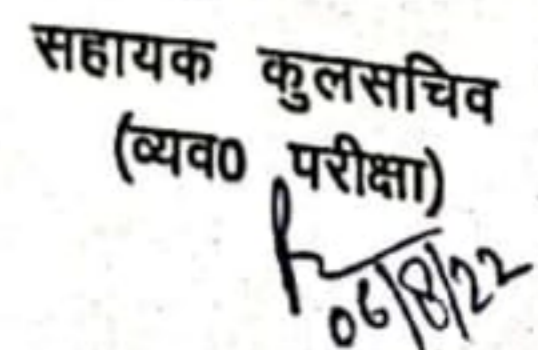 सहायक कुलसचिव
(व्यव0 परीक्षा)
06/8/22